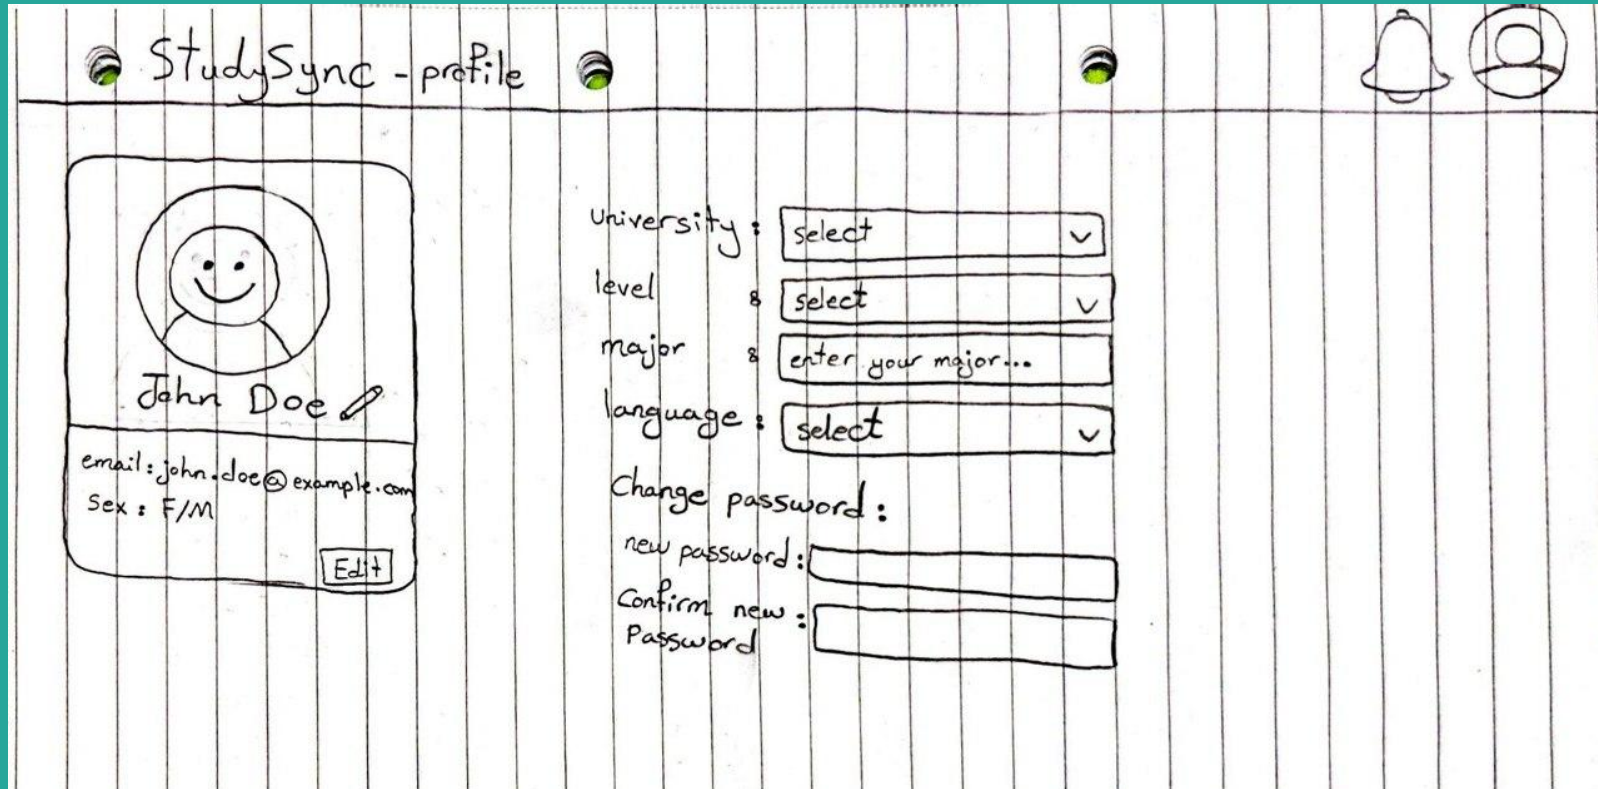 StudySync - profile
John Doe
email: john.doe@example.com
Sex: F/M
Edit
University: select
level: select
major: enter your major...
language: select
Change password:
new password:
Confirm new
Password: